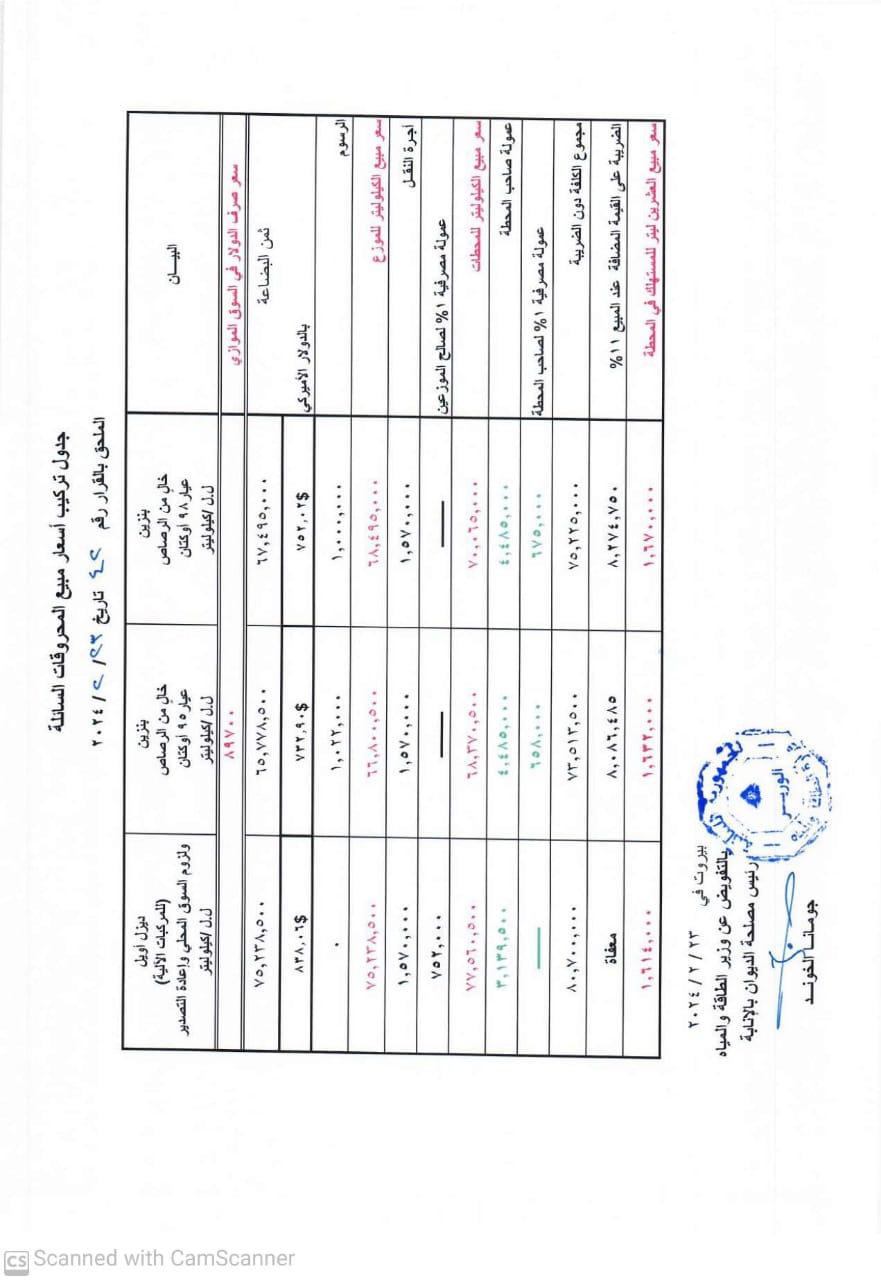 جدول تركيب أسعار مبيع المحروقات السائلة
الملحق بالقرار رقم ٤٢ تاريخ ٢٣/ ٢/ ٢٠٢٤
البيــان
بنزين
خالٍ من الرصاص
عيار ٩٨ أوكتان
ل.ل/كيلوليتر
بنزين
خالٍ من الرصاص
عيار ٩٥ أوكتان
ل.ل/كيلوليتر
ديزل أويل
(للمركبات الآلية)
ولزوم السوق المحلي وإعادة التصدير
ل.ل/كيلوليتر
سعر صرف الدولار في السوق الموازي ٨٩٧٠٠
ثمن البضاعة ٦٧,٤٩٥,٠٠٠ ٦٥,٧٧٨,٥٠٠ ٧٥,٢٣٨,٥٠٠
بالدولار الأميركي ٧٥٢,٠٢$ ٧٣٢,٩٠$ ٨٣٨,٠٦$
الرسوم ١,٠٠٠,٠٠٠ ١,٠٢٢,٠٠٠ ٠
سعر مبيع الكيلوليتر للموزع ٦٨,٤٩٥,٠٠٠ ٦٦,٨٠٠,٥٠٠ ٧٥,٢٣٨,٥٠٠
أجرة النقـل ١,٥٧٠,٠٠٠ ١,٥٧٠,٠٠٠ ١,٥٧٠,٠٠٠
عمولة مصرفية ١% لصالح الموزعين — — ٧٥٢,٠٠٠
سعر مبيع الكيلوليتر للمحطات ٧٠,٠٦٥,٠٠٠ ٦٨,٣٧٠,٥٠٠ ٧٧,٥٦٠,٥٠٠
عمولة صاحب المحطة ٤,٤٨٥,٠٠٠ ٤,٤٨٥,٠٠٠ ٣,١٣٩,٥٠٠
عمولة مصرفية ١% لصاحب المحطة ٦٧٥,٠٠٠ ٦٥٨,٠٠٠ —
مجموع الكلفة دون الضريبة ٧٥,٢٢٥,٠٠٠ ٧٣,٥١٣,٥٠٠ ٨٠,٧٠٠,٠٠٠
الضريبة على القيمة المضافة عند المبيع ١١% ٨,٢٧٤,٧٥٠ ٨,٠٨٦,٤٨٥ معفاة
سعر مبيع العشرين ليتر للمستهلك في المحطة ١,٦٧٠,٠٠٠ ١,٦٣٢,٠٠٠ ١,٦١٤,٠٠٠
بيروت في ٢٣ / ٢ / ٢٠٢٤
بالتفويض عن وزير الطاقة والمياه
رئيس مصلحة الديوان بالإنابة
جومانـا الخونـد
الوزيـر
CS Scanned with CamScanner